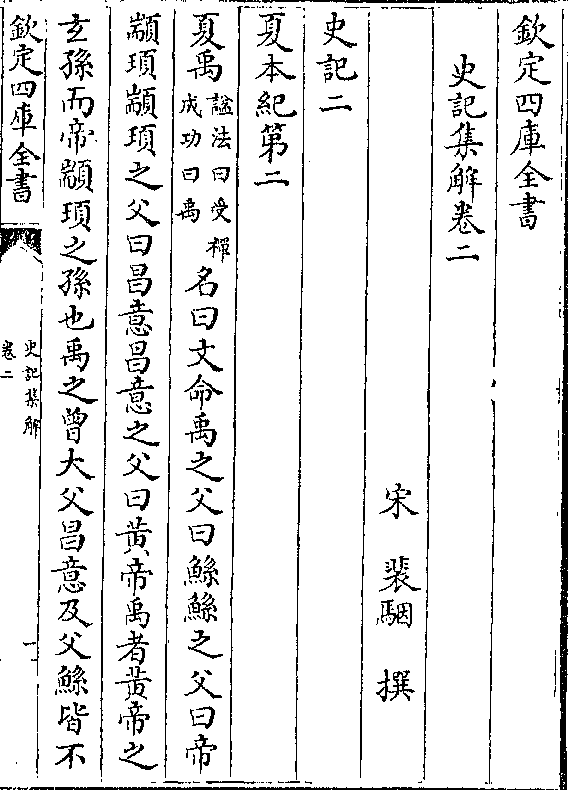 欽定四庫全書
史記集解卷二
宋 裴駰 撰
史記二
夏本紀第二
夏禹諡法曰受禪成功曰禹名曰文命禹之父曰鯀鯀之父曰帝
顓頊顓頊之父曰昌意昌意之父曰黄帝禹者黄帝之
玄孫而帝顓頊之孫也禹之曾大父昌意及父鯀皆不
欽定四庫全書
史記集解
卷二
一